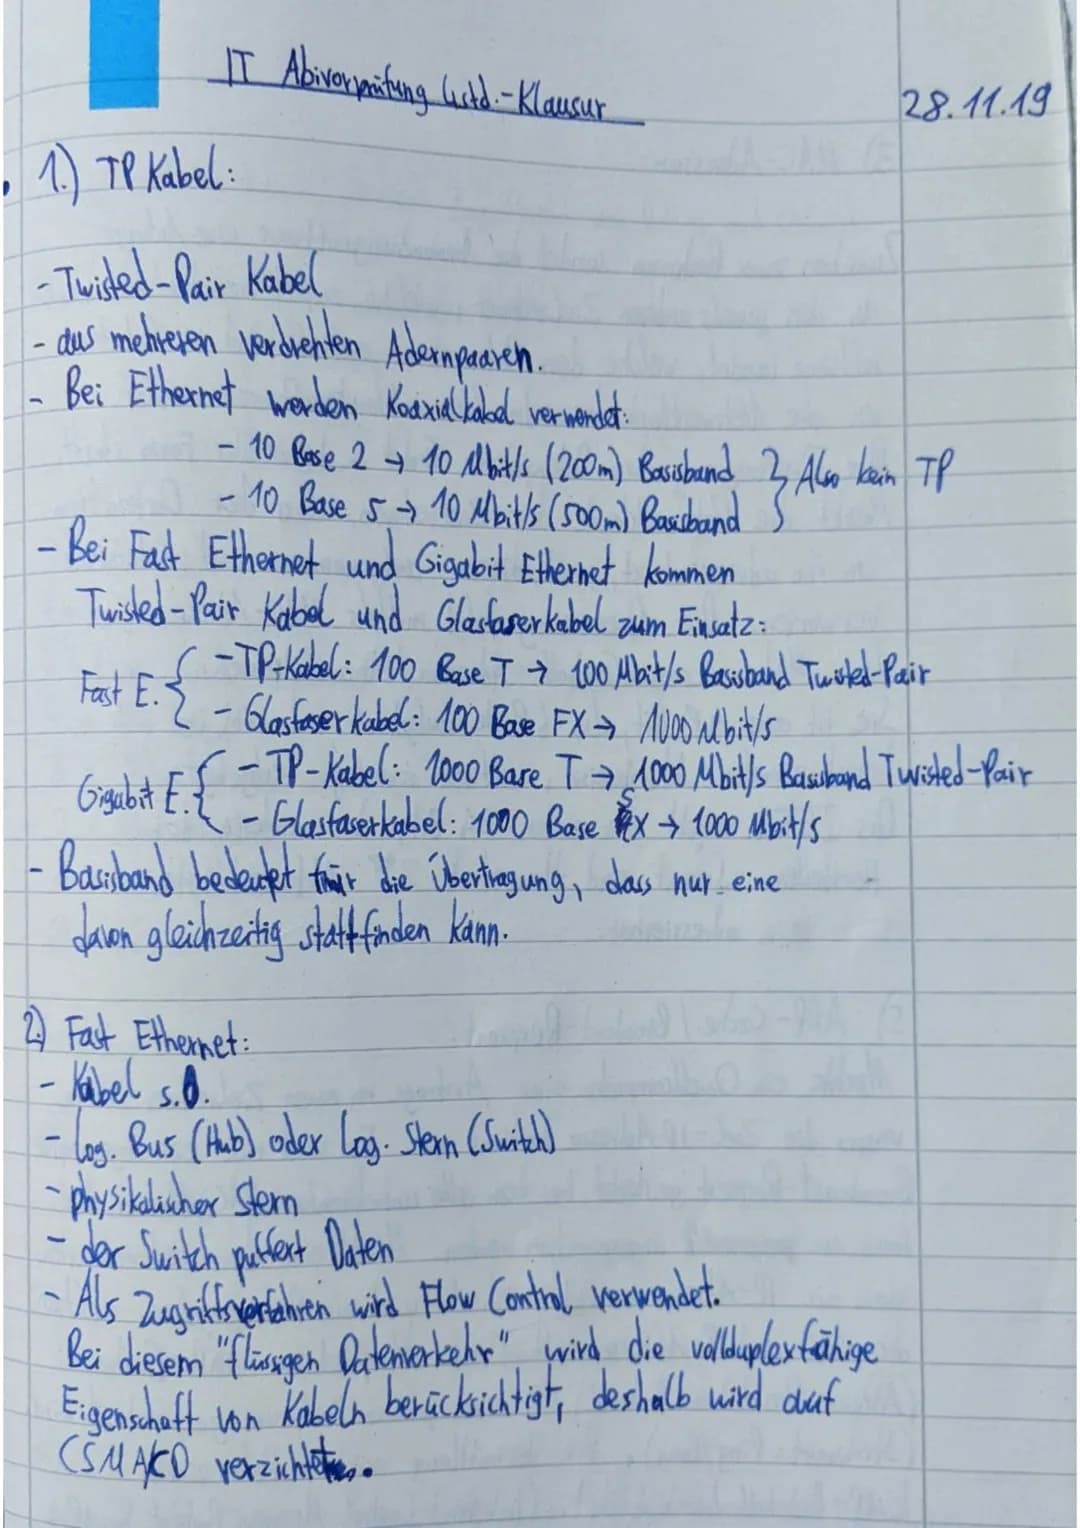 IT Abivorprüfung 4std.-Klausur
28.11.19
1.) TP Kabel:
- Twisted-Pair Kabel
- aus mehreren verdrehten Adernpaaren.
- Bei Ethernet werden Koaxialkabel verwendet:
- 10 Base 2 → 10 Mbit/s (200m) Basisband } Also kein TP
- 10 Base 5 → 10 Mbit/s (500m) Basisband
- Bei Fast Ethernet und Gigabit Ethernet kommen
Twisted-Pair Kabel und Glasfaserkabel zum Einsatz:
Fast E. { - TP-Kabel: 100 Base T → 100 Mbit/s Basisband Twisted-Pair
- Glasfaserkabel: 100 Base FX → 1000 Mbit/s
Gigabit E. { - TP-Kabel: 1000 Base T → 1000 Mbit/s Basisband Twisted-Pair
- Glasfaserkabel: 1000 Base SX → 1000 Mbit/s
- Basisband bedeutet für die Übertragung, dass nur eine
davon gleichzeitig stattfinden kann.
2) Fast Ethernet:
- Kabel s.o.
- log. Bus (Hub) oder log. Stern (Switch)
- physikalischer Stern
- der Switch puffert Daten
- Als Zugriffsverfahren wird Flow Control verwendet.
Bei diesem "flüssigen Datenverkehr" wird die vollduplexfähige
Eigenschaft von Kabeln berücksichtigt, deshalb wird auf
CSMA/CD verzichtet.